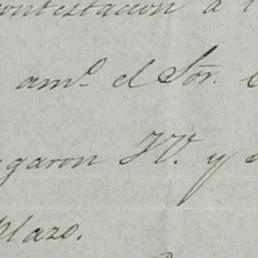 contestacion á l
amº el Sor.
garon W. y
plazo.